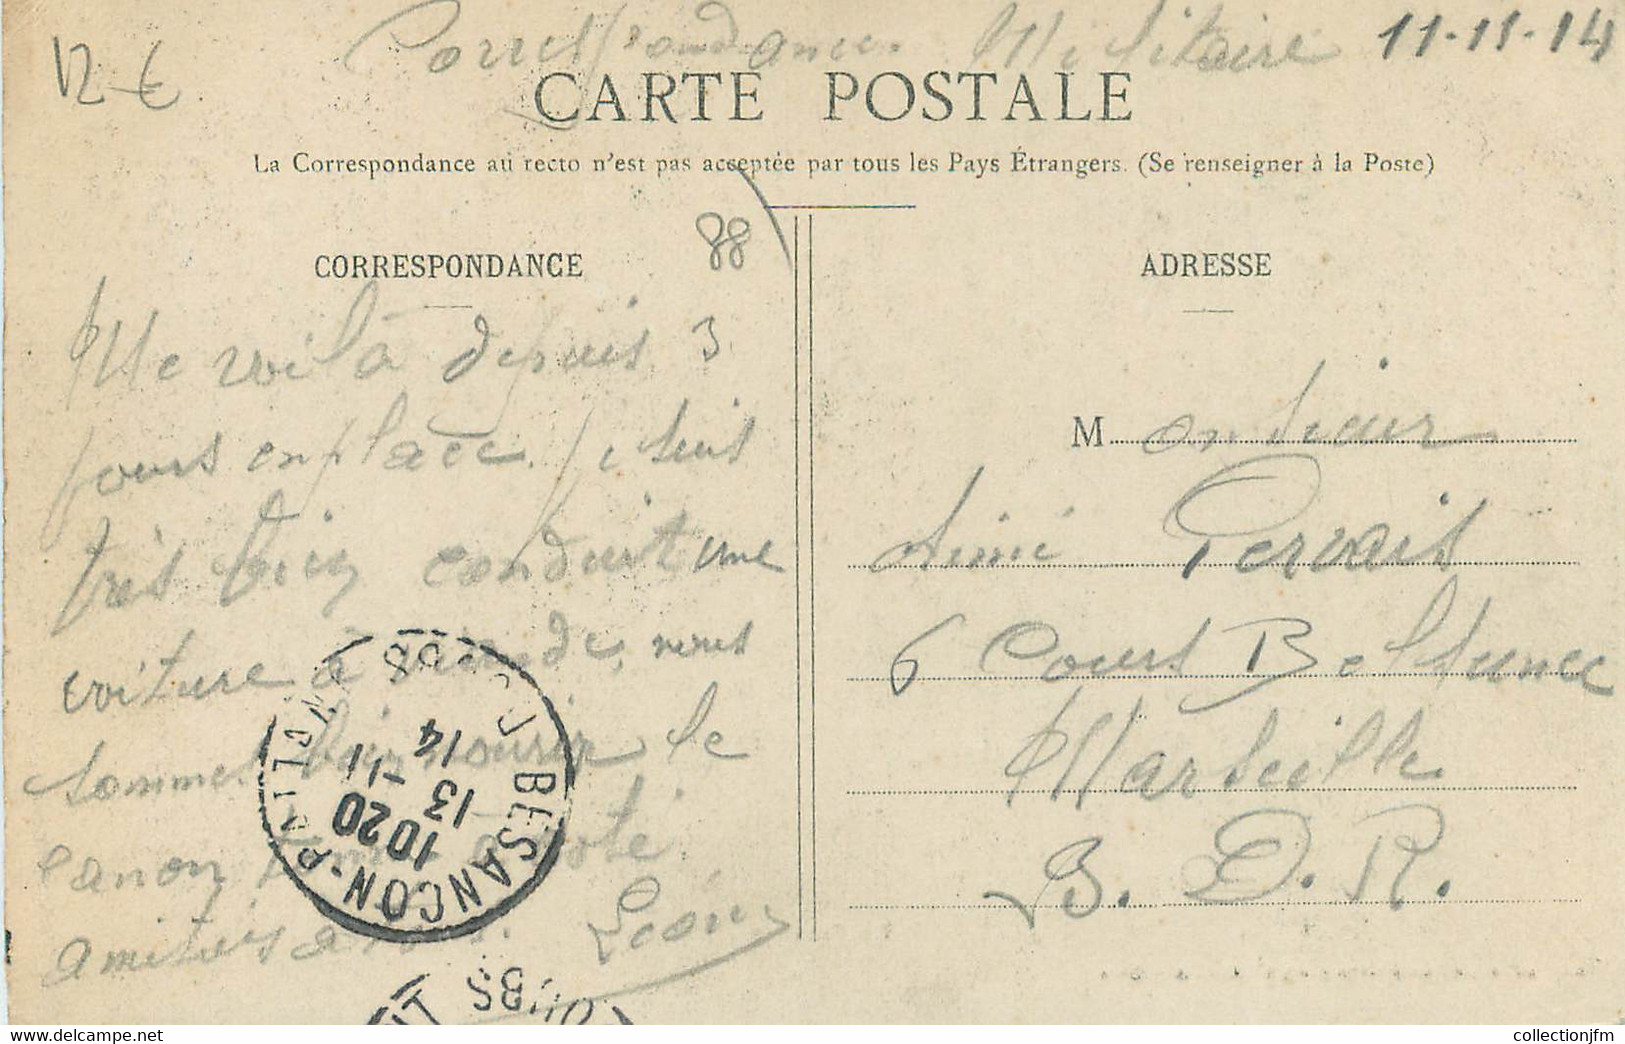 12 €
Correspondance Militaire 11-11-14
CARTE POSTALE
La Correspondance au recto n'est pas acceptée par tous les Pays Étrangers. (Se renseigner à la Poste)
88
CORRESPONDANCE
Me voilà depuis 3
jours en place. Je suis
très bien conduit une
voiture à viande, nous
sommes bien nourir le
canon tonne à coté
amitiés à tous. Léon
ADRESSE
Monsieur
Aimé Pervais
6 Cours Belsunce
Marseille
B. D. R.
BESANCON-P DOUBS
1020
13 -11
14
DOUBS
www.delcampe.net
collectionjfm